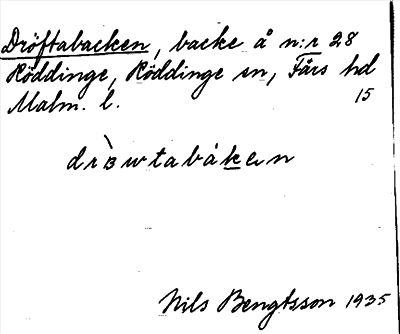 Dröftabacken, backe å n:r 28
Röddinge, Röddinge sn, Färs hd
Malm. l. 15
drɜ̀wtabákæn
Nils Bengtsson 1935